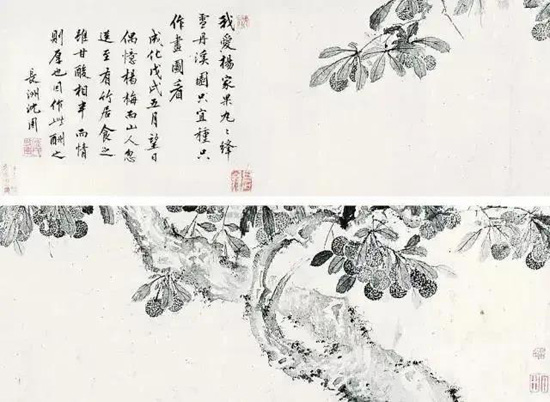 我愛楊家果丸〻絳
雪丹溪園只宜種只
作畫圖看
成化戊戌五月望日
偶憶楊梅而山人忽
送至有竹居食之
雖甘酸相半而情
則厚也因作此酬之
長洲沈周